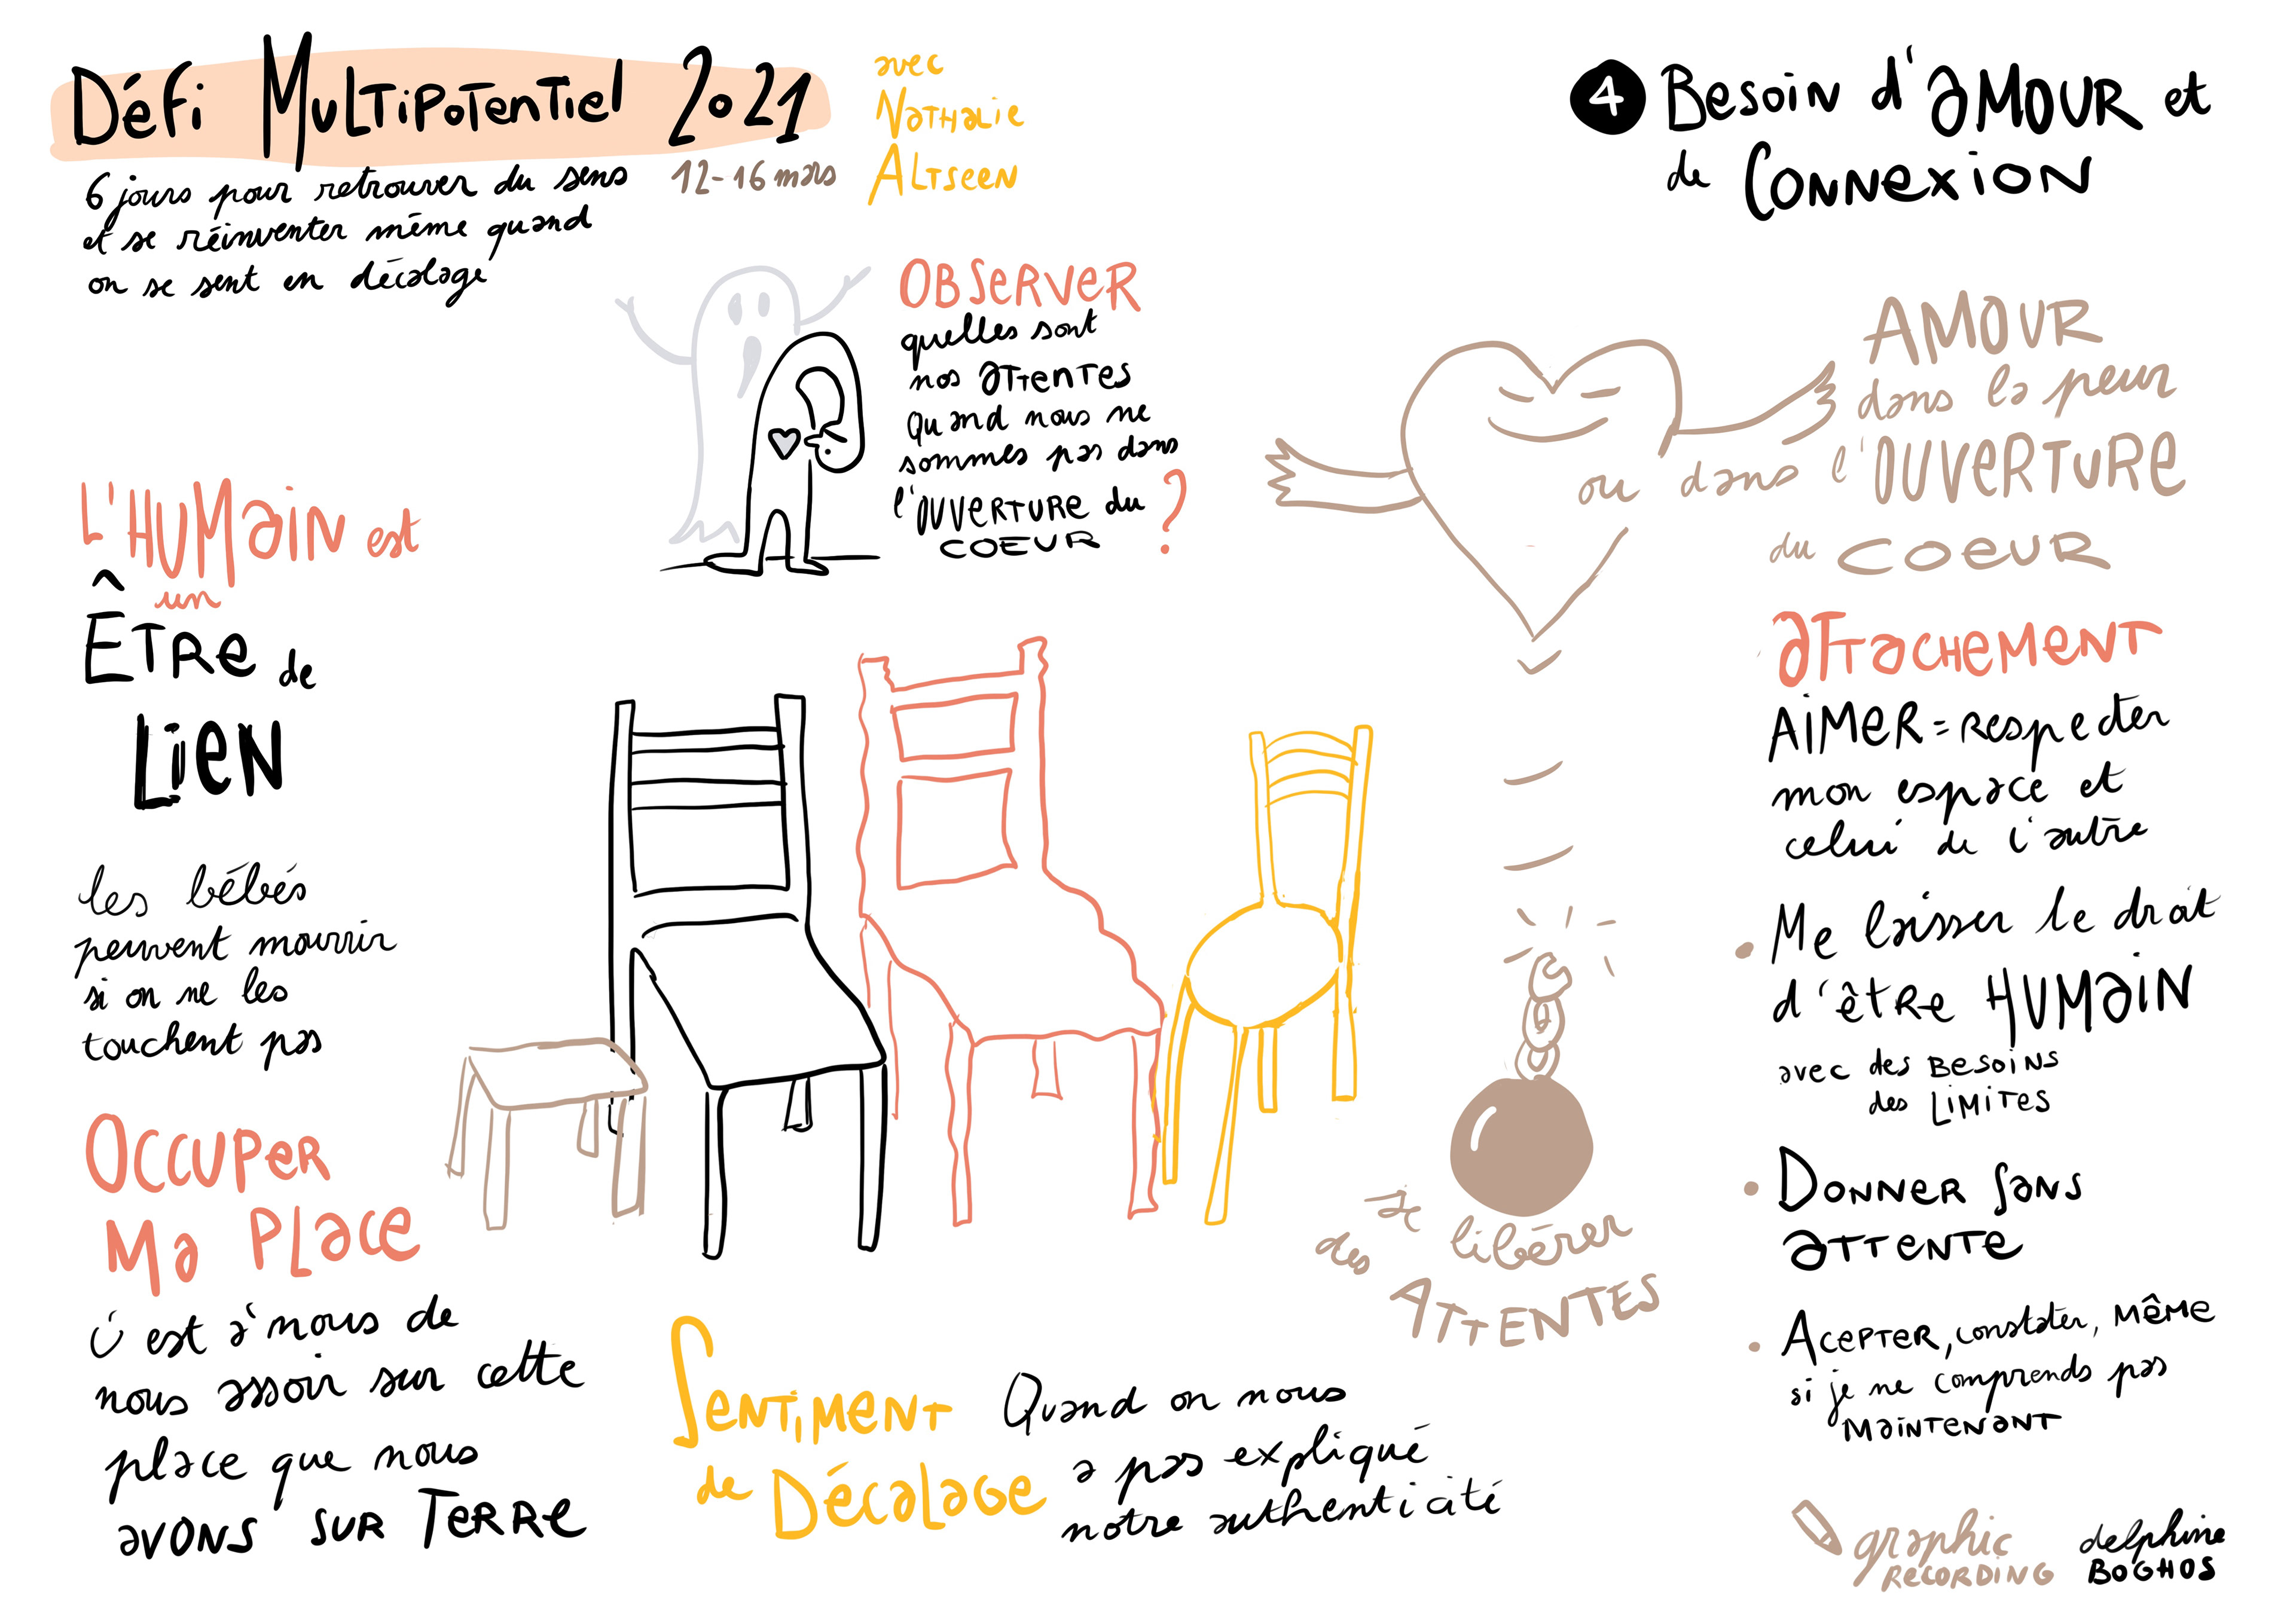 Défi Multipotentiel 2021
6 jours pour retrouver du sens
et se réinventer même quand
on se sent en décalage
12-16 mars
avec
Nathalie
Altseen
4 Besoin d'amour et
de Connexion
Observer
quelles sont
nos attentes
quand nous ne
sommes pas dans
l'ouverture du
coeur ?
Amour
dans la peur
ou dans l'ouverture
du coeur
L'humain est
un
Être de
Lien
les bébés
peuvent mourrir
si on ne les
touchent pas
Occuper
Ma Place
C'est à nous de
nous assoir sur cette
place que nous
avons sur Terre
Sentiment
de Décalage
Quand on nous
a pas expliqué
notre authenticité
se libérer
des Attentes
Attachement
Aimer = respecter
mon espace et
celui de l'autre
• Me laisser le droit
d'être Humain
avec des besoins
des limites
• Donner sans
attente
• Acepter, constater, même
si je ne comprends pas
maintenant
graphic
recording
delphine
Boghos